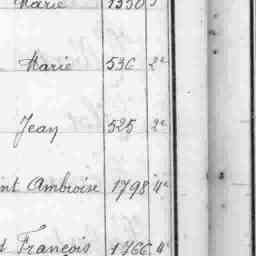 Marie 1330
Marie 536 2e
Jean 525 2e
nt Ambroise 1798 4e
François 1766 4e